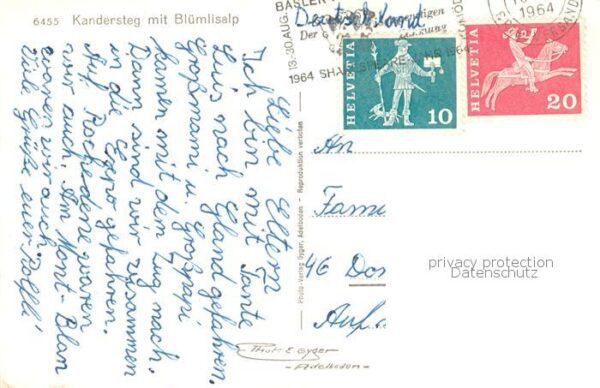 6455 Kandersteg mit Blümlisalp
Liebe Eltern
Ich bin mit Tante
Luis nach Gland gefahren.
Großmami u. Großpapi
kamen mit dem Zug nach.
Dann sind wir zusammen
in die Expo gefahren.
Auf Rochedene waren
wir auch. Am Mont-Blan
waren wir auch.
Viele Grüße euer Rolfli
Photo-Verlag Gyger, Adelboden - Reproduktion verboten
Photo E Gyger
Adelboden
BASLER
13.-30.AUG.
1964 SHAKESPEARE 1964
1964
Deutschland
HELVETIA
10
HELVETIA
20
An
Fami
46 Dos
Aufa
privacy protection
Datenschutz